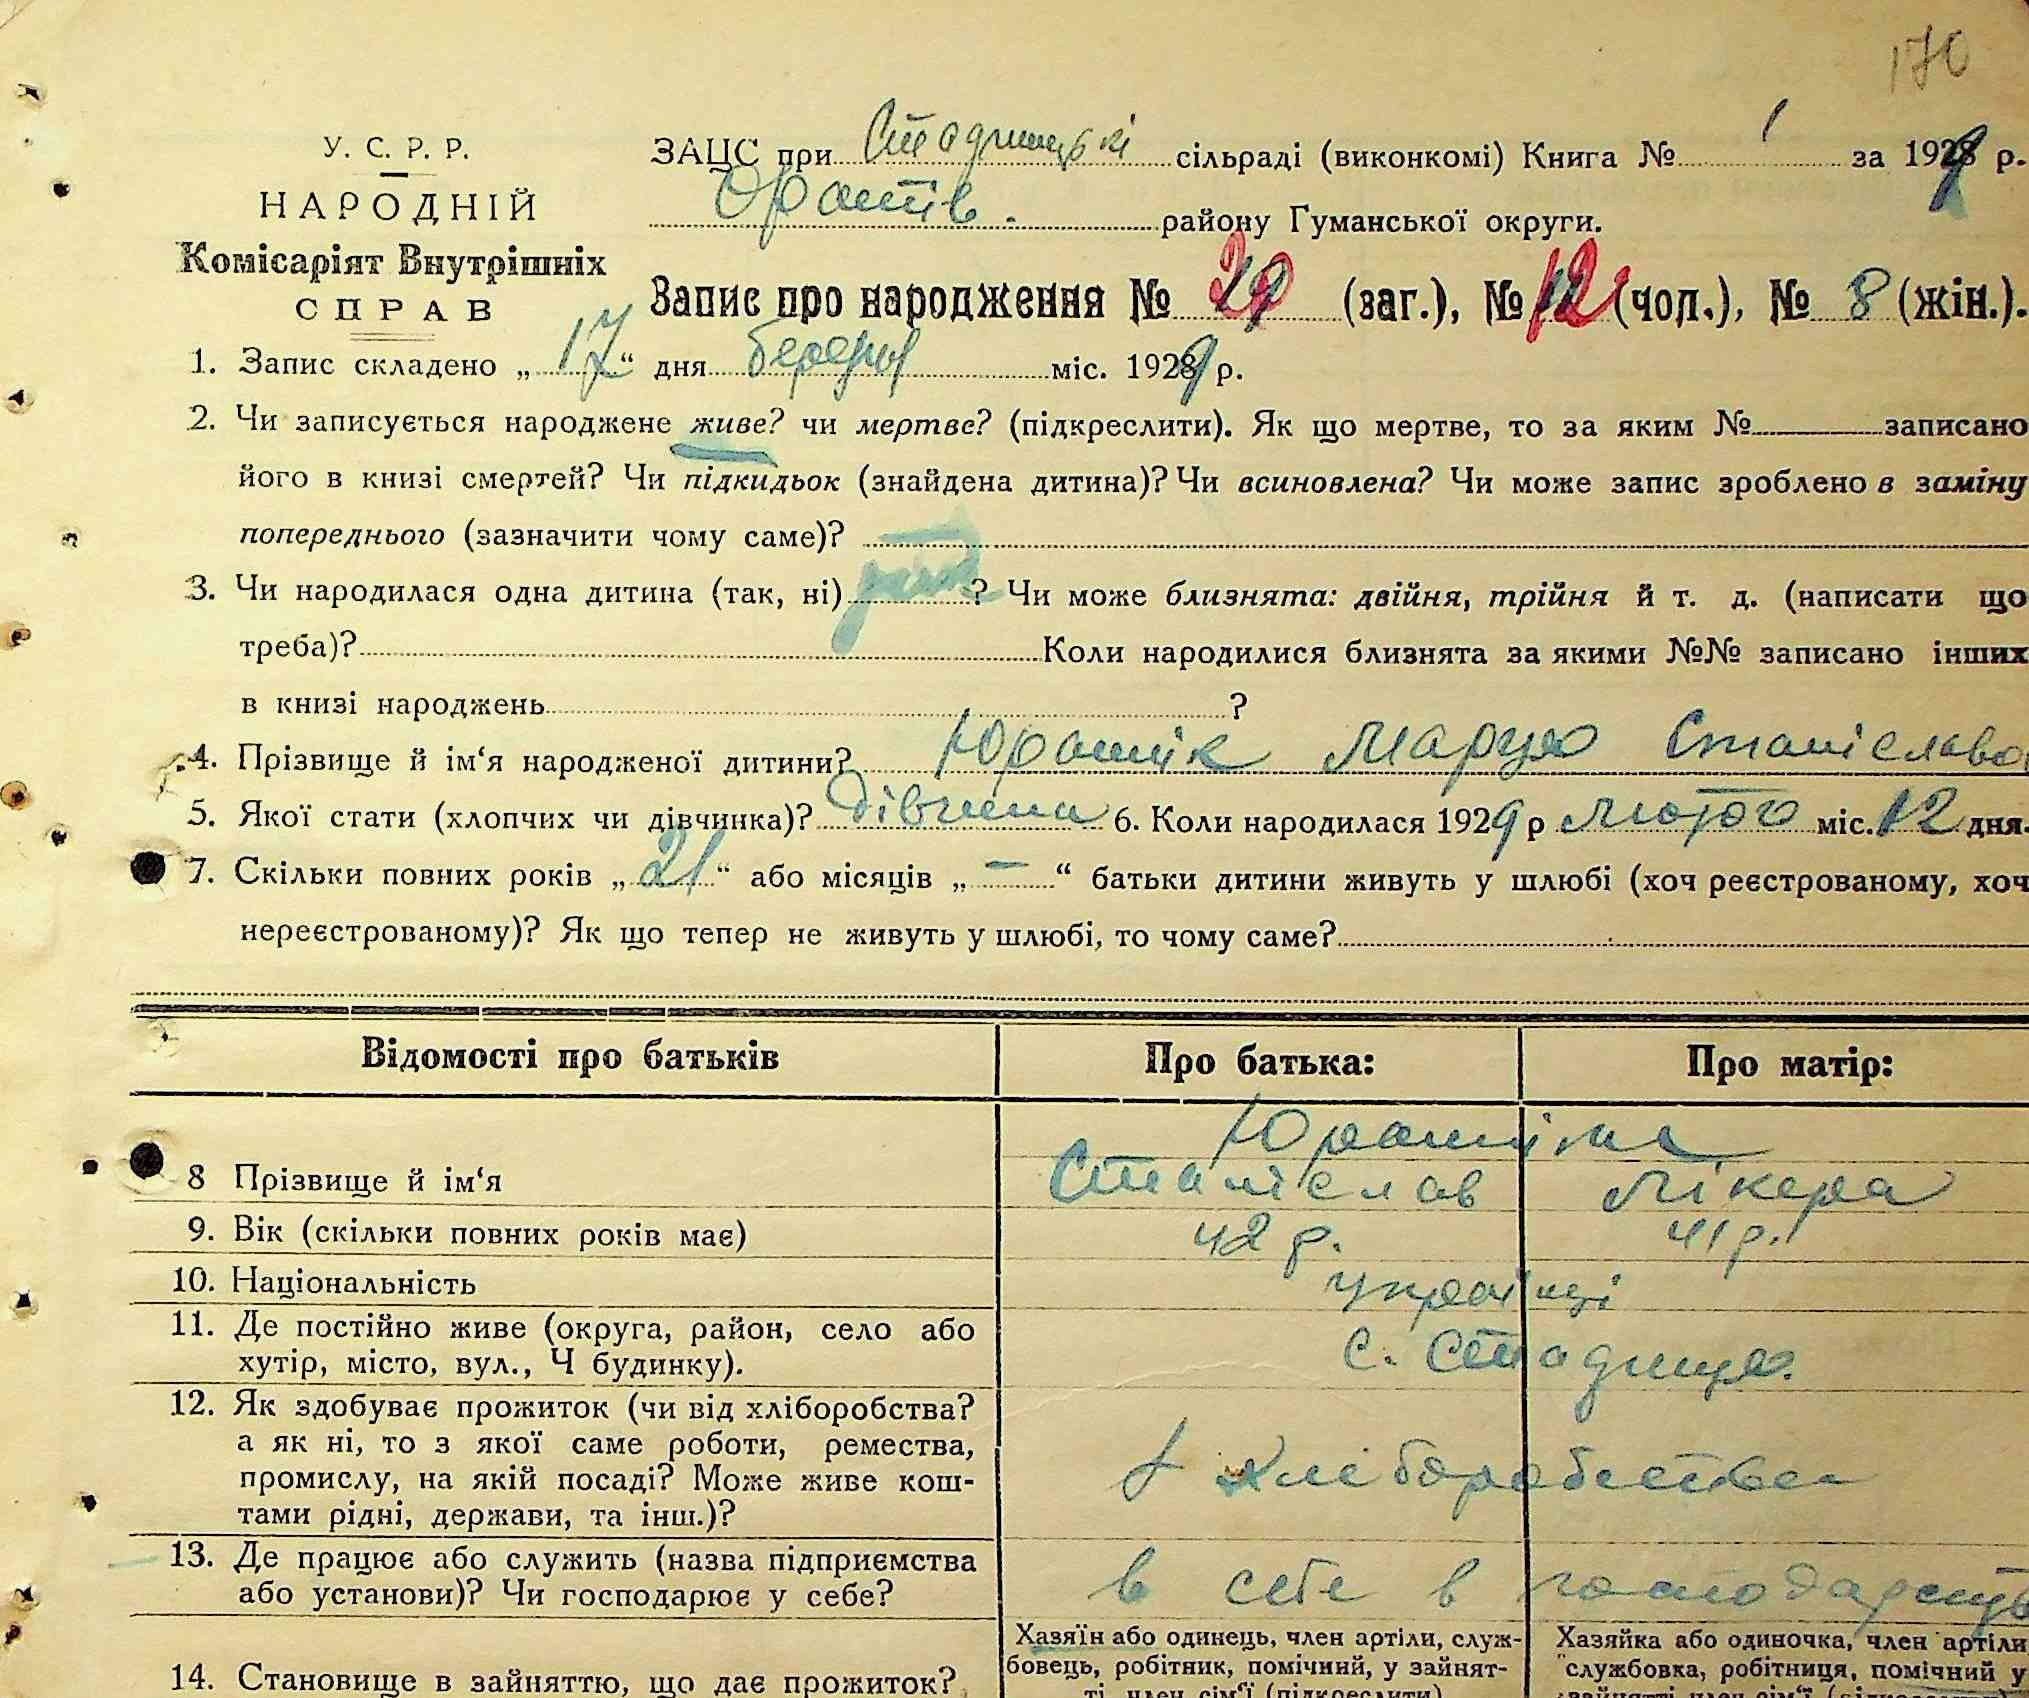 170
У. С. Р. Р.
НАРОДНІЙ
Комісаріят Внутрішніх
СПРАВ
ЗАЦС при Стадницькі сільраді (виконкомі) Книга № 1 за 1929 р.
Оратів. району Гуманської округи.
Запис про народження № 20 (заг.), № 12 (чол.), № 8 (жін.).
1. Запис складено „17“ дня березня міс. 1929 р.
2. Чи записується народжене живе? чи мертве? (підкреслити). Як що мертве, то за яким № записано
його в книзі смертей? Чи підкидьок (знайдена дитина)? Чи всиновлена? Чи може запис зроблено в заміну
попереднього (зазначити чому саме)?
3. Чи народилася одна дитина (так, ні) ? Чи може близнята: двійня, трійня й т. д. (написати що
треба)? Коли народилися близнята за якими №№ записано інших
в книзі народжень ?
4. Прізвище й ім‘я народженої дитини? Юрашік Маруся Станіславо
5. Якої стати (хлопчих чи дівчинка)? Дівчина 6. Коли народилася 1929 р Лютого міс. 12 дня.
7. Скільки повних років „21“ або місяців „—“ батьки дитини живуть у шлюбі (хоч реєстрованому, хоч
нереєстрованому)? Як що тепер не живуть у шлюбі, то чому саме?
Відомості про батьків Про батька: Про матір:
8 Прізвище й ім‘я Станіслав Лікера
9. Вік (скільки повних років має) 42 р. 41 р.
10. Національність українці
11. Де постійно живе (округа, район, село або
хутір, місто, вул., Ч будинку). с. Стадниця.
12. Як здобуває прожиток (чи від хліборобства?
а як ні, то з якої саме роботи, ремества,
промислу, на якій посаді? Може живе кош-
тами рідні, держави, та інш.)? з хліборобства
13. Де працює або служить (назва підприємства
або установи)? Чи господарює у себе? в себе в господарств
Хазяїн або одинець, член артіли, служ-
бовець, робітник, помічний, у зайнят-
ті, член сім‘ї (підкреслити)
Хазяйка або одиночка, член артіли
службовка, робітниця, помічний у
14. Становище в зайняттю, що дає прожиток?